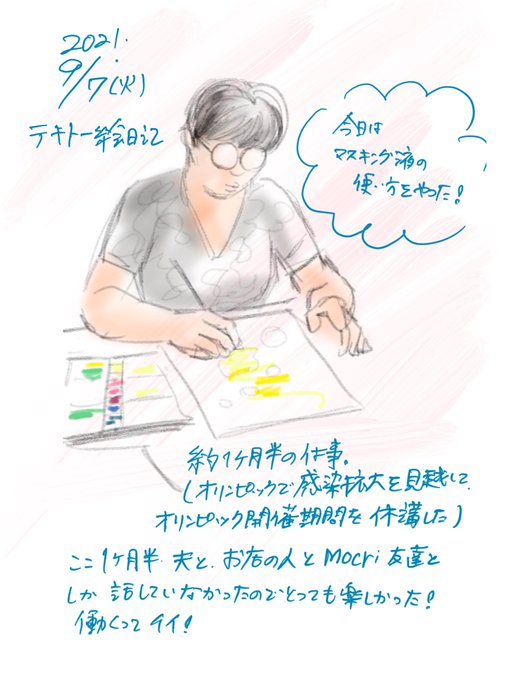 2021.
9/7(火)
テキトー絵日記
今日は
マスキング液の
使い方をやった!
約1ヶ月半の仕事。
(オリンピックで感染拡大を見越して
オリンピック開催期間を休講した)
ここ1ヶ月半 夫と、お店の人とMocri友達と
しか話していなかったのでとっても楽しかった!
働くってイイ!